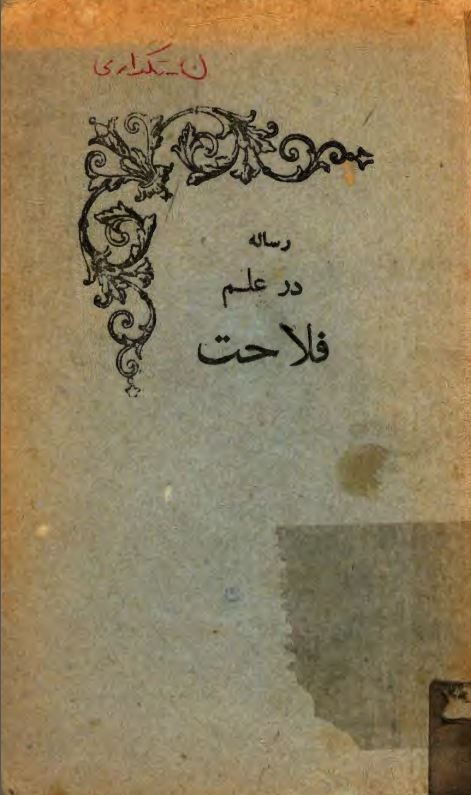 رساله
در علم
فلاحت